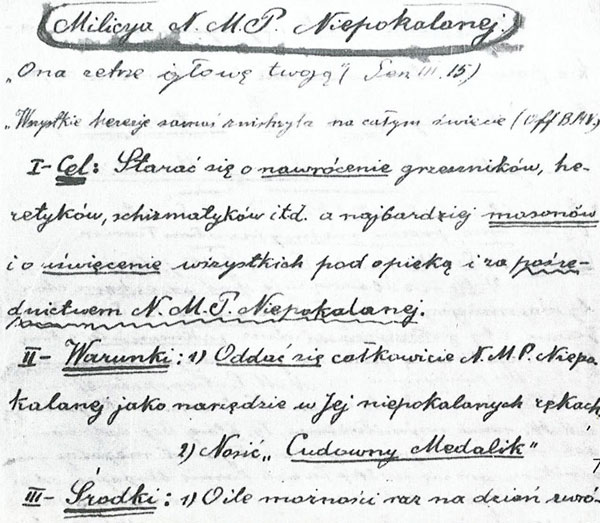 Milicya N. M. P. Niepokalanej.
"Ona zetrze głowę twoją" (Gen III. 15.)
"Wszystkie herezje samaś zniszczyła na całym świecie (Off B.M.V.)
I - Cel: Starać się o nawrócenie grzeszników, he-
retyków, schizmatyków itd. a najbardziej masonów
i o uświęcenie wszystkich pod opieką i za pośre-
dnictwem N. M. P. Niepokalanej.
II - Warunki: 1) Oddać się całkowicie N. M. P. Niepo
kalanej jako narzędzie w Jej niepokalanych rękach
2) Nosić „Cudowny Medalik"
III - Środki: 1) O ile możności raz na dzień zwró-